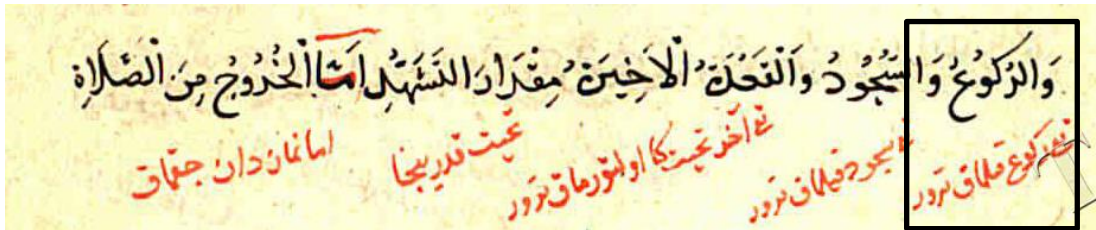 وَالرُّكُوْعُ وَالسُّجُوْدُ وَالْقَعْدَةُ الْاَخِيْرَةُ مِقْدَارَ التَّشَهُّدِ اَمَّا الْخُرُوْجُ مِنَ الصَّلَاةِ
نى ركوع قلماق تورور نى سجود قيلماق تورور نى آخر تحيت كا اولتورماق تورور تحيت قدرينجا اما نمازدان جقماق